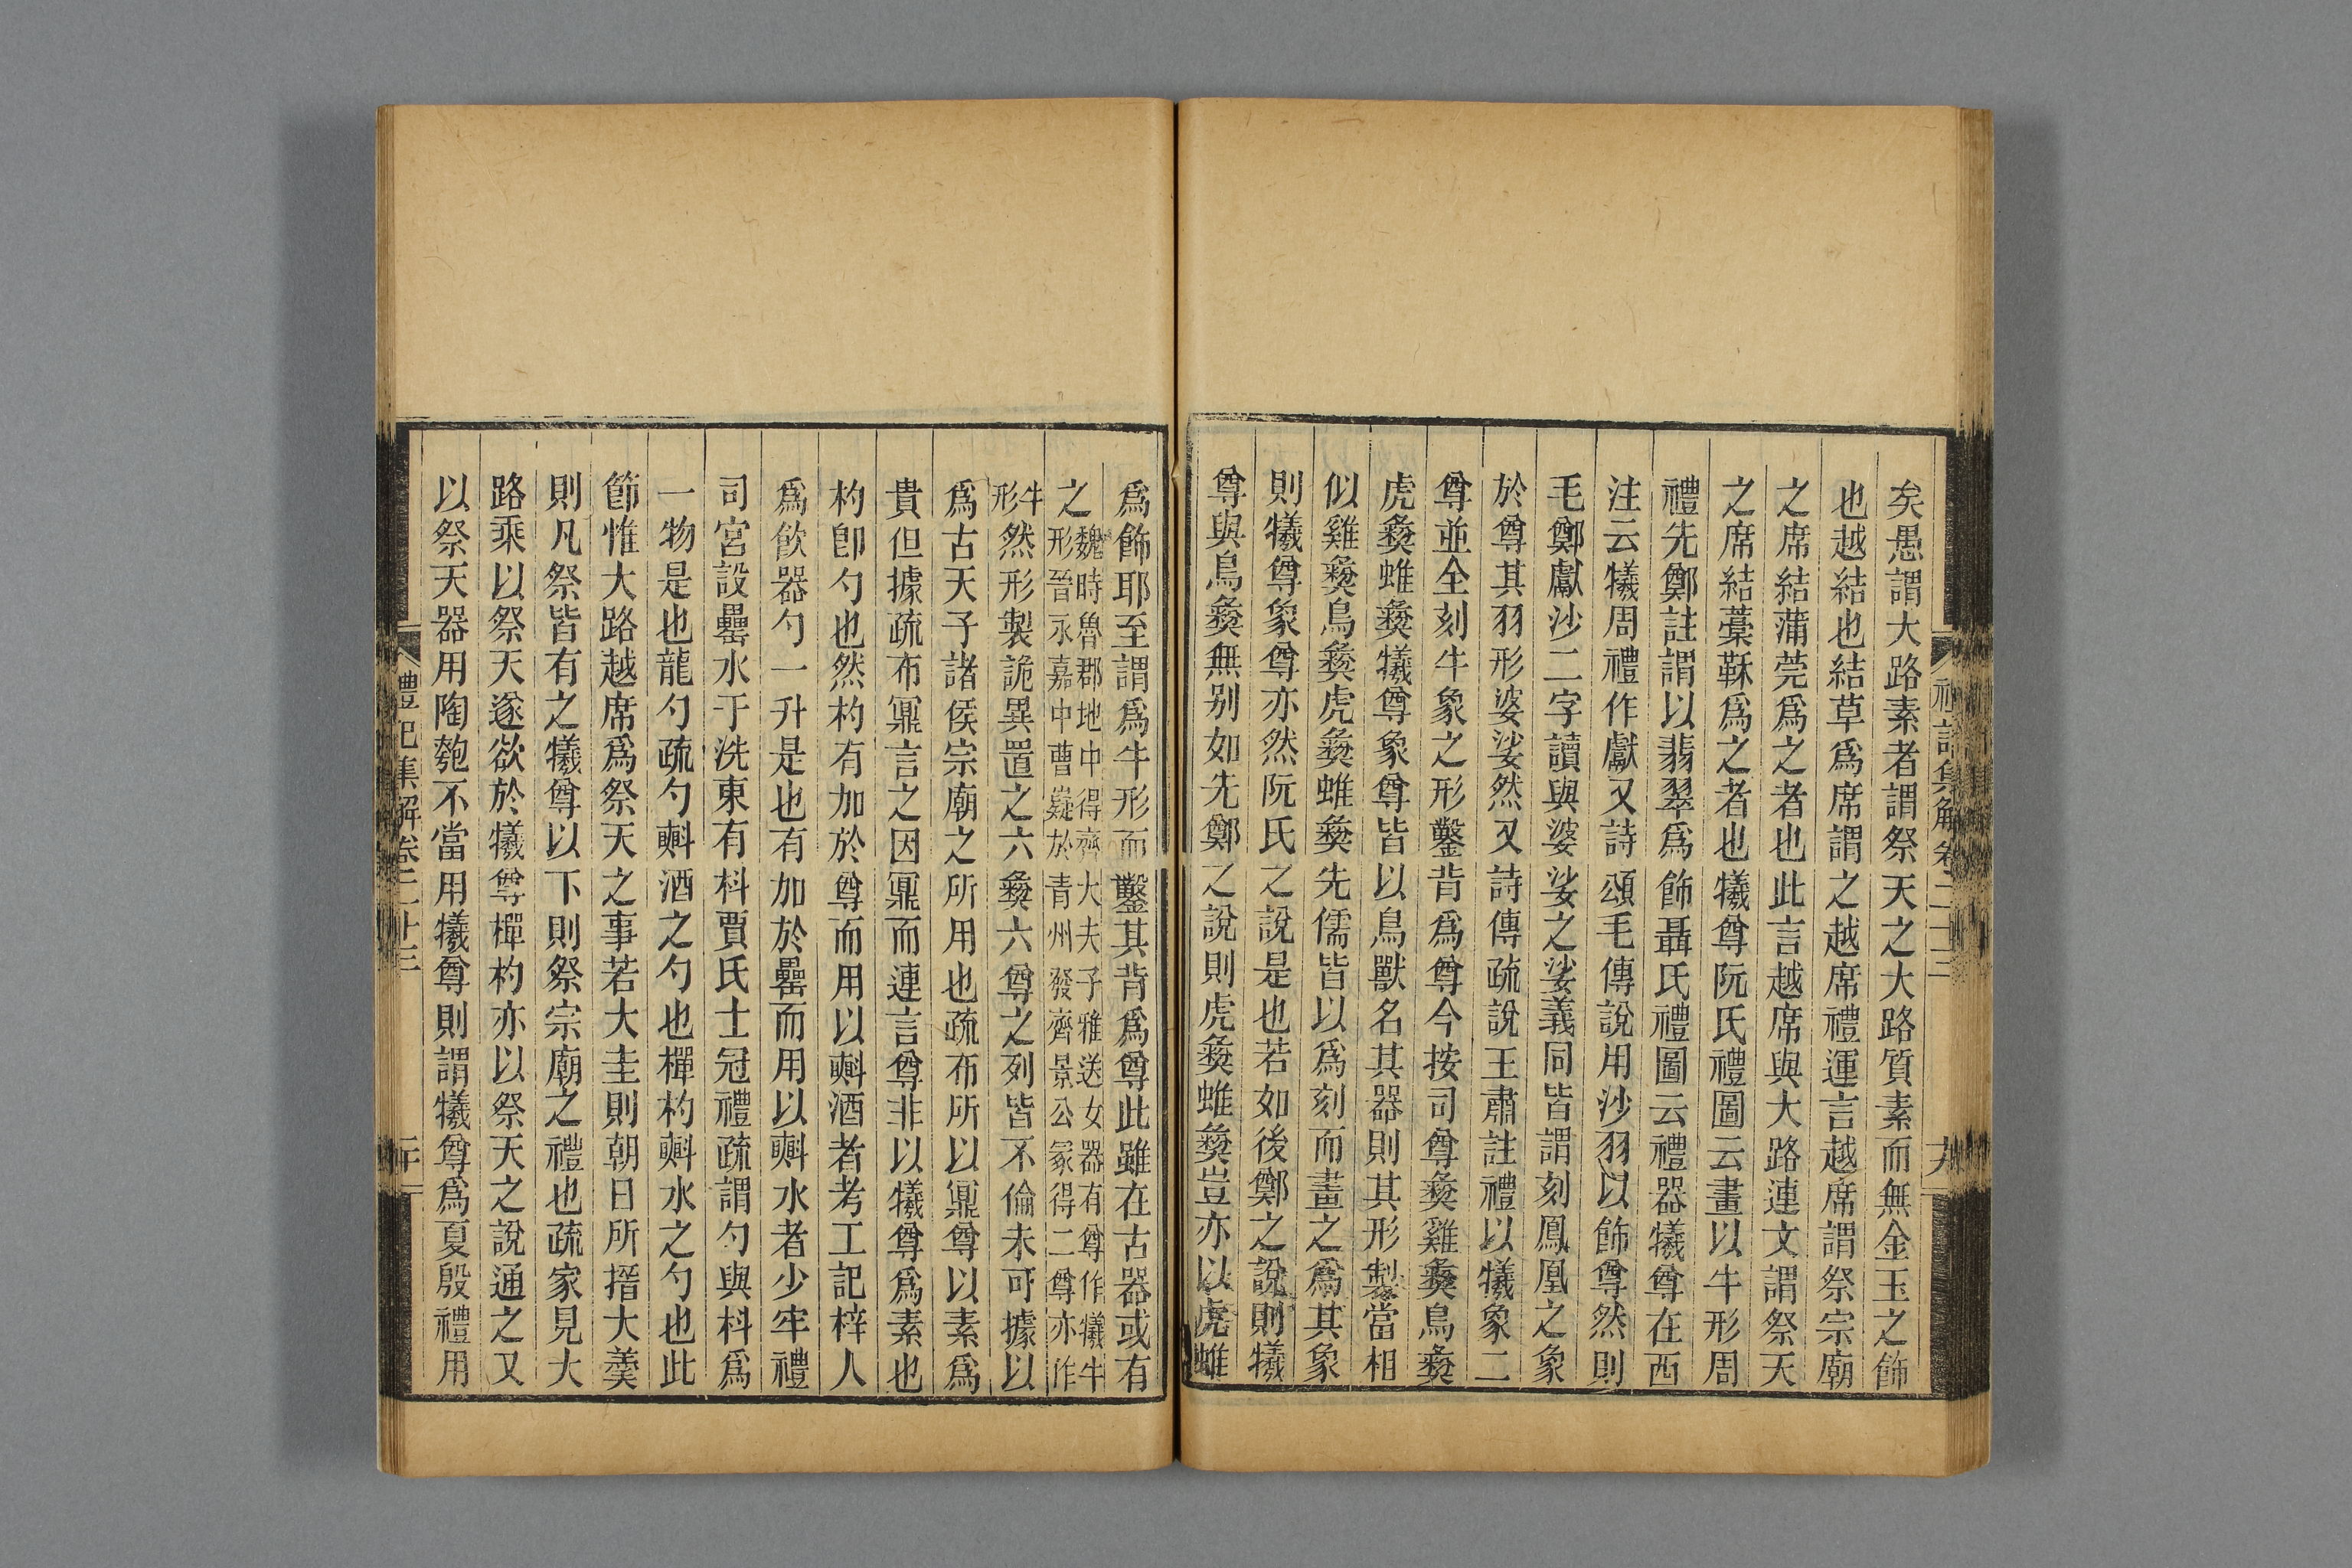 矣愚謂大路素者謂祭天之大路質素而無金玉之飾
也越結也結草爲席謂之越席禮運言越席謂祭宗廟
之席結蒲莞爲之者也此言越席與大路連文謂祭天
之席結藁鞂爲之者也犧尊阮氏禮圖云畫以牛形周
禮先鄭註謂以翡翠爲飾聶氏禮圖云禮器犧尊在西
注云犧周禮作獻又詩頌毛傳說用沙羽以飾尊然則
毛鄭獻沙二字讀與婆娑之娑義同皆謂刻鳳凰之象
於尊其羽形婆娑然又詩傳疏說王肅註禮以犧象二
尊並全刻牛象之形鑿背爲尊今按司尊彝雞彝鳥彝
虎彝蜼彝犧尊象尊皆以鳥獸名其器則其形製當相
似雞彝鳥彝虎彝蜼彝先儒皆以爲刻而畫之爲其象
則犧尊象尊亦然阮氏之說是也若如後鄭之說則犧
尊與鳥彝無别如先鄭之說則虎彝蜼彝豈亦以虎蜼
爲飾耶至謂爲牛形而鑿其背爲尊此雖在古器或有
之魏時魯郡地中得齊大夫子雅送女器有尊作犧牛
形晉永嘉中曹嶷於青州發齊景公冢得二尊亦作
牛形然形製詭異置之六彝六尊之列皆不倫未可據以
爲古天子諸侯宗廟之所用也疏布所以鼏尊以素爲
貴但據疏布鼏言之因鼏而連言尊非以犧尊爲素也
杓卽勺也然杓有加於尊而用以㪺酒者考工記梓人
爲飮器勺一升是也有加於罍而用以㪺水者少牢禮
司宮設罍水于洗東有枓賈氏士冠禮疏謂勺與枓爲
一物是也龍勺疏勺㪺酒之勺也樿杓㪺水之勺也此
節惟大路越席爲祭天之事若大圭則朝日所搢大羹
則凡祭皆有之犧尊以下則祭宗廟之禮也疏家見大
路乘以祭天遂欲於犧尊樿杓亦以祭天之說通之又
以祭天器用陶匏不當用犧尊則謂犧尊爲夏殷禮用
禮記集解卷二十三